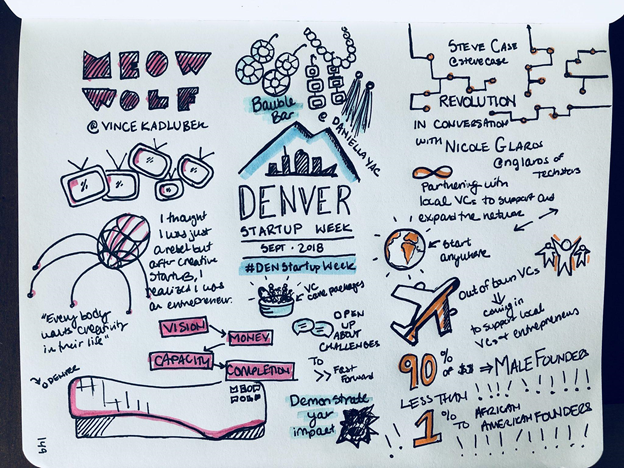 MEOW
WOLF
@ VINCE KADLUBEK
I thought
I was just
a rebel but
after creative
startups, I
realized I was
an entrepreneur.
"Every body
wants creativity
in their life"
VISION
MONEY
CAPACITY
COMPLETION
MEOW
WOLF
149
Bauble
Bar
@ DANIELLA YAC
DENVER
STARTUP WEEK
SEPT · 2018
#DENStartupWeek
VC
care packages
OPEN
UP
ABOUT
CHALLENGES
TO
>> Fast
Forward
Demonstrate
your
impact
STEVE CASE
@stevecase
REVOLUTION
IN CONVERSATION
WITH NICOLE GLAROS
@nglaros of
Techstars
Partnering with
local VCs to support and
expand the network
Start
anywhere
Out of town VCs
coming in
to support local
VCs + entrepreneurs
90% of $$ ⇒ MALE FOUNDERS
LESS THAN
1% TO AFRICAN
AMERICAN FOUNDERS